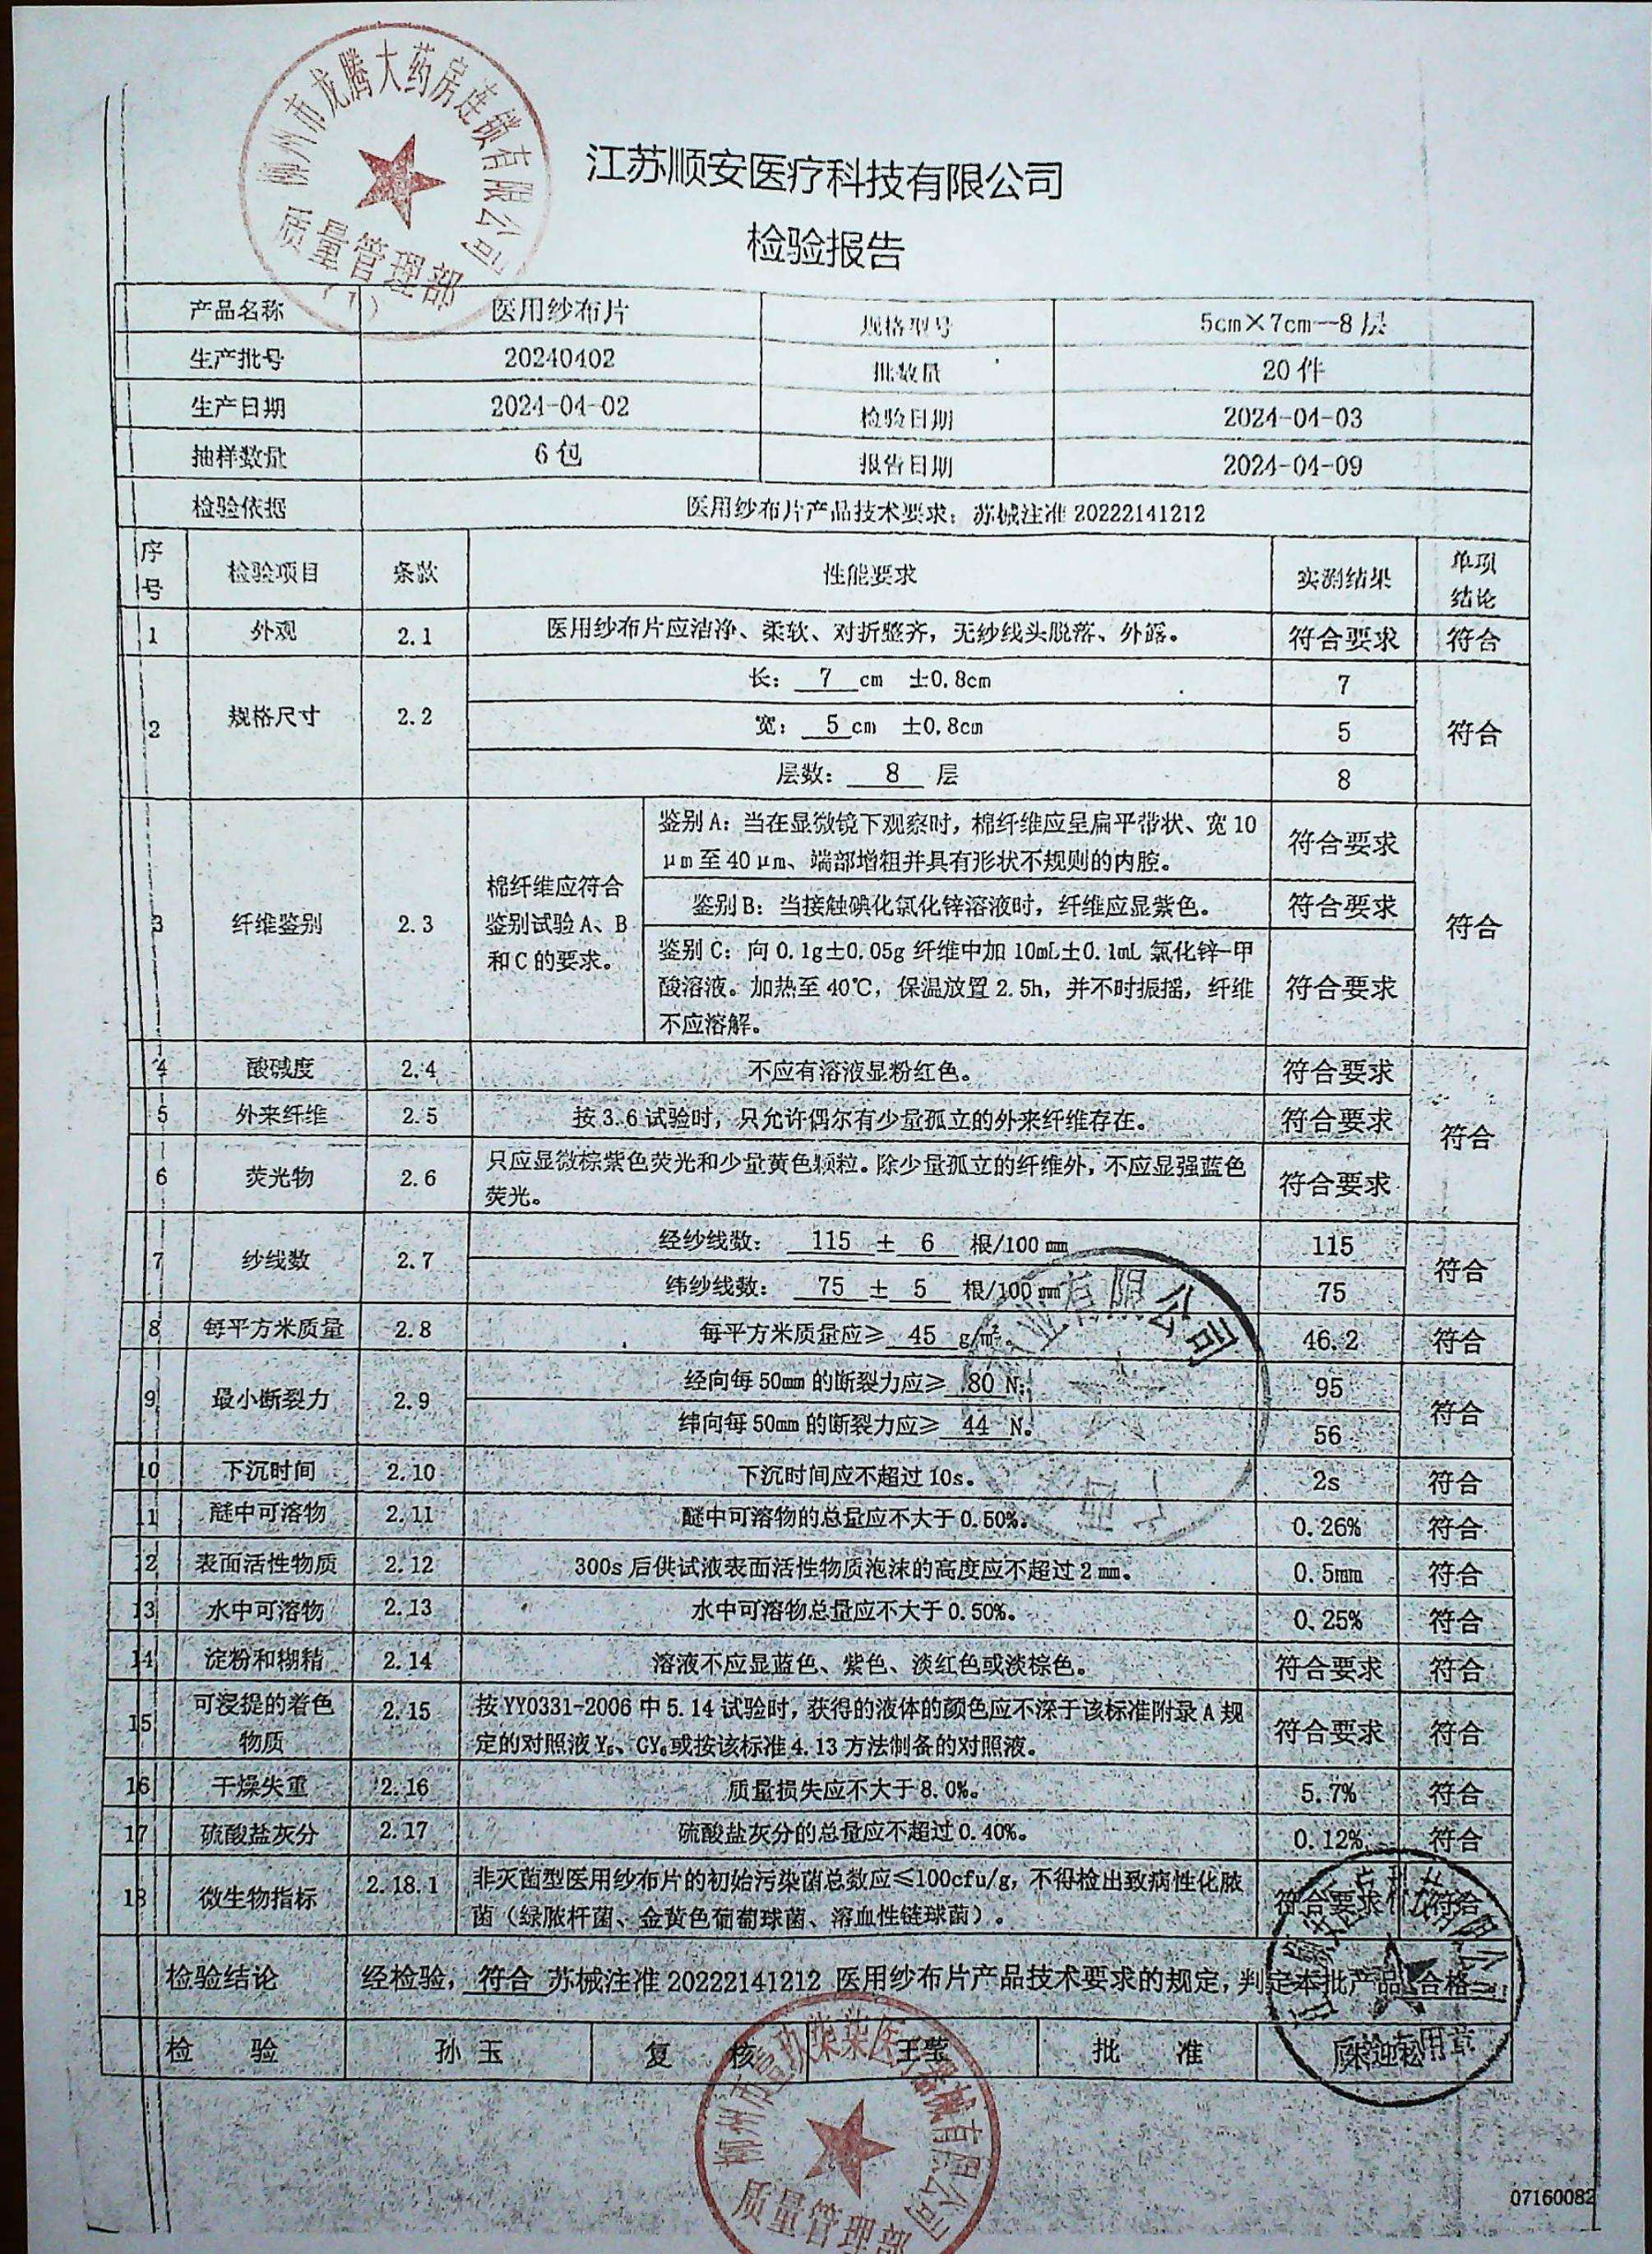 柳州市龙腾大药房连锁有限公司
质量管理部
(1)
江苏顺安医疗科技有限公司
检验报告
产品名称 医用纱布片 规格型号 5cm×7cm—8层
生产批号 20240402 批数量 20件
生产日期 2024-04-02 检验日期 2024-04-03
抽样数量 6包 报告日期 2024-04-09
检验依据 医用纱布片产品技术要求：苏械注准20222141212
序号 检验项目 条款 性能要求 实测结果 单项结论
1 外观 2.1 医用纱布片应洁净、柔软、对折整齐，无纱线头脱落、外露。 符合要求 符合
2 规格尺寸 2.2 长： 7 cm ±0.8cm 7 符合
宽： 5 cm ±0.8cm 5
层数： 8 层 8
3 纤维鉴别 2.3 棉纤维应符合鉴别试验A、B和C的要求。
鉴别A：当在显微镜下观察时，棉纤维应呈扁平带状、宽10
μm至40μm、端部增粗并具有形状不规则的内腔。 符合要求
鉴别B：当接触碘化氯化锌溶液时，纤维应显紫色。 符合要求 符合
鉴别C：向0.1g±0.05g纤维中加10mL±0.1mL氯化锌-甲
酸溶液。加热至40℃，保温放置2.5h，并不时振摇，纤维
不应溶解。 符合要求
4 酸碱度 2.4 不应有溶液显粉红色。 符合要求
5 外来纤维 2.5 按3.6试验时，只允许偶尔有少量孤立的外来纤维存在。 符合要求 符合
6 荧光物 2.6 只应显微棕紫色荧光和少量黄色颗粒。除少量孤立的纤维外，不应显强蓝色
荧光。 符合要求
7 纱线数 2.7 经纱线数： 115 ± 6 根/100mm 115 符合
纬纱线数： 75 ± 5 根/100mm 75
8 每平方米质量 2.8 每平方米质量应≥ 45 g/m². 46.2 符合
9 最小断裂力 2.9 经向每50mm的断裂力应≥ 80 N; 95 符合
纬向每50mm的断裂力应≥ 44 N。 56
10 下沉时间 2.10 下沉时间应不超过10s。 2s 符合
11 醚中可溶物 2.11 醚中可溶物的总量应不大于0.50%。 0.26% 符合
12 表面活性物质 2.12 300s后供试液表面活性物质泡沫的高度应不超过2mm。 0.5mm 符合
13 水中可溶物 2.13 水中可溶物总量应不大于0.50%。 0.25% 符合
14 淀粉和糊精 2.14 溶液不应显蓝色、紫色、淡红色或淡棕色。 符合要求 符合
15 可浸提的着色物质 2.15 按YY0331-2006中5.14试验时，获得的液体的颜色应不深于该标准附录A规
定的对照液Y₅、GY₆或按该标准4.13方法制备的对照液。 符合要求 符合
16 干燥失重 2.16 质量损失应不大于8.0%。 5.7% 符合
17 硫酸盐灰分 2.17 硫酸盐灰分的总量应不超过0.40%。 0.12% 符合
18 微生物指标 2.18.1 非灭菌型医用纱布片的初始污染菌总数应≤100cfu/g，不得检出致病性化脓
菌（绿脓杆菌、金黄色葡萄球菌、溶血性链球菌）。 符合要求 符合
检验结论 经检验， 符合 苏械注准20222141212 医用纱布片产品技术要求的规定，判定本批产品 合格
检 验 孙玉 复 核 王莹 批 准
业有限公司
质检专用章
柳州市壹玖柒柒医疗器械有限公司
质量管理部
07160082